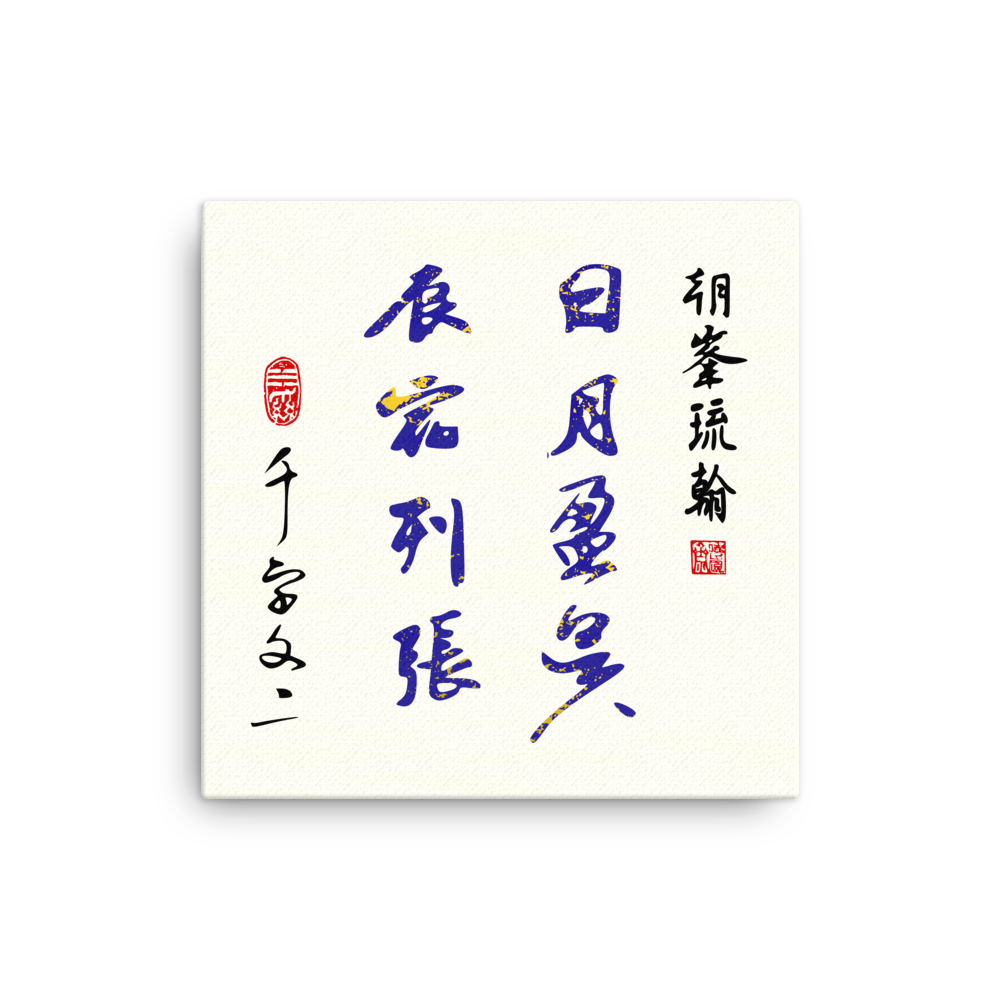 朝峯琉翰
日月盈昃
辰宿列張
千字文二